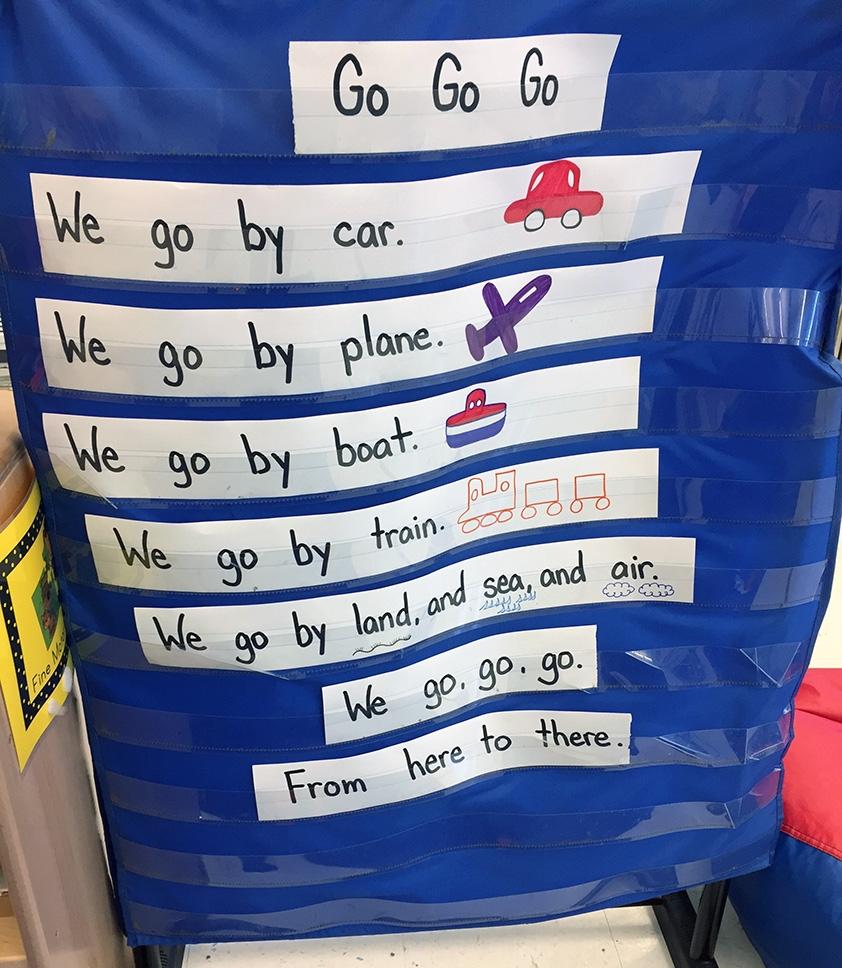 Go Go Go
We go by car.
We go by plane.
We go by boat.
We go by train.
We go by land, and sea, and air.
We go. go. go.
From here to there.
Fine